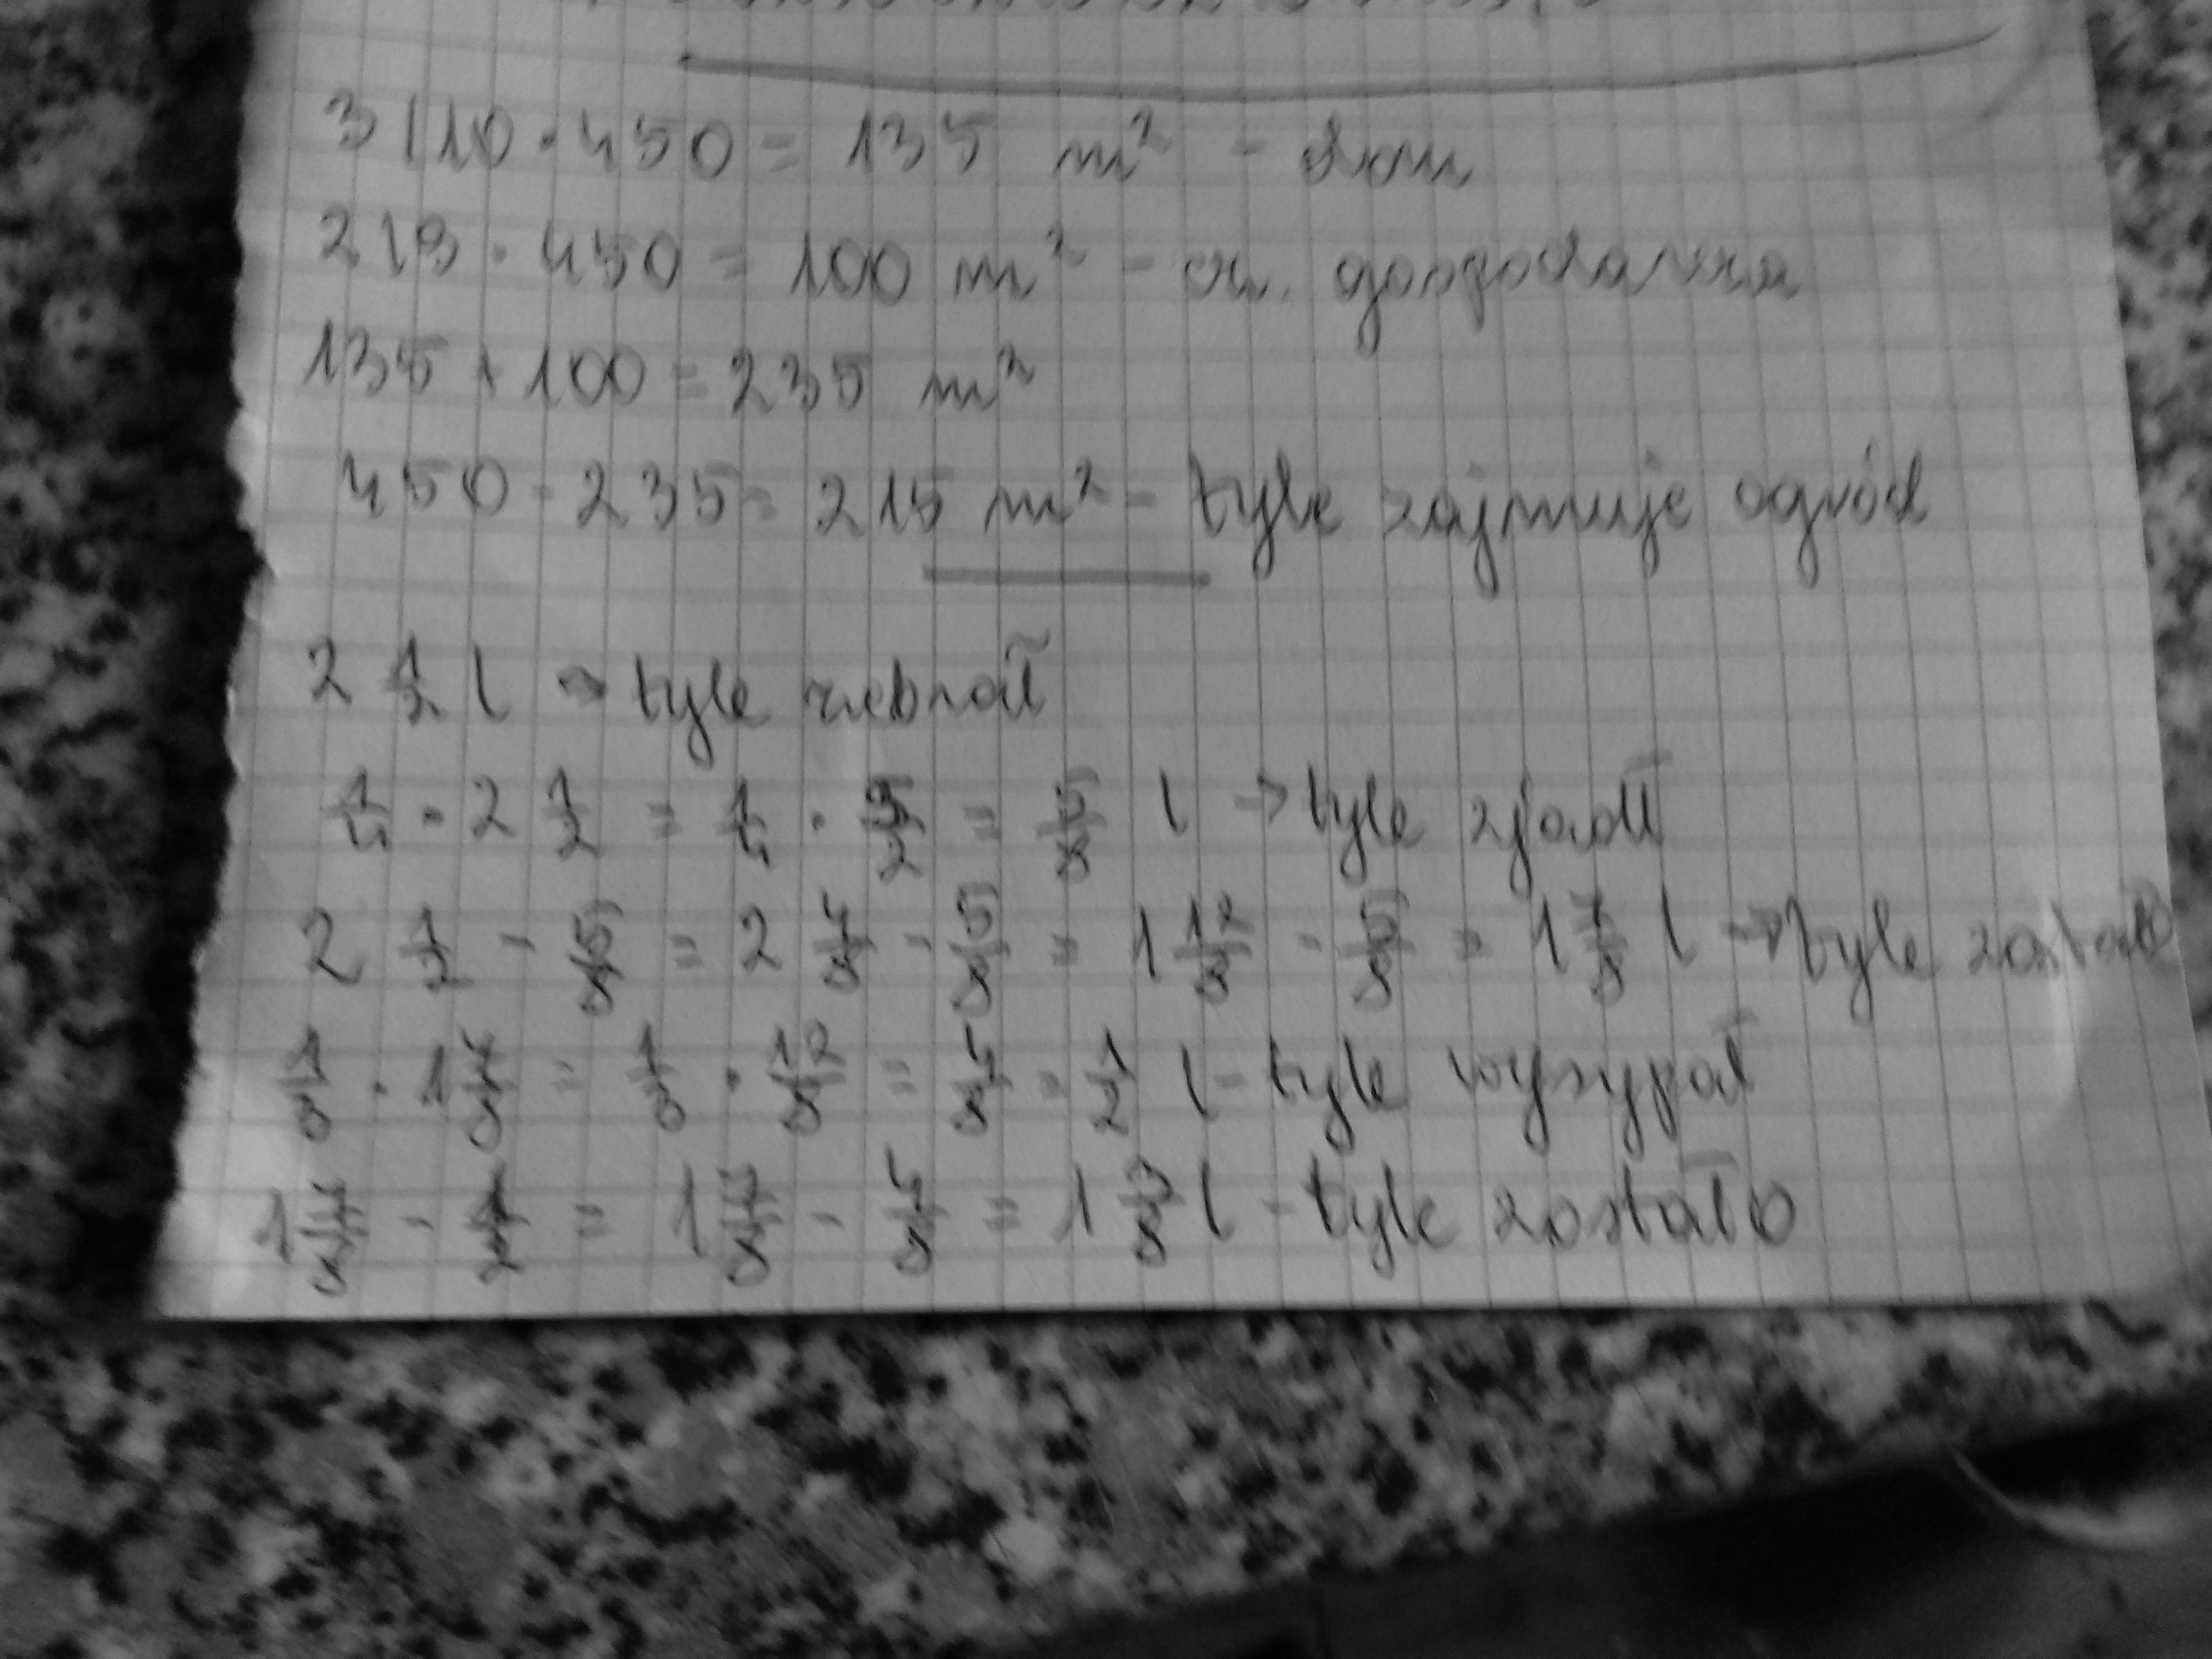 3/10 · 450 = 135 m² - dom
2/9 · 450 = 100 m² - cz. gospodarcza
135 + 100 = 235 m²
450 - 235 = 215 m² - tyle zajmuje ogród
2 1/2 l → tyle zebrał
1/4 · 2 1/2 = 1/4 · 5/2 = 5/8 l → tyle zjadł
2 1/2 - 5/8 = 2 4/8 - 5/8 = 1 12/8 - 5/8 = 1 7/8 l → tyle zostało
· 1 7/8 = · = 4/8 = 1/2 l - tyle wysypał
1 7/8 - 1/2 = 1 7/8 - 4/8 = 1 3/8 l - tyle zostało